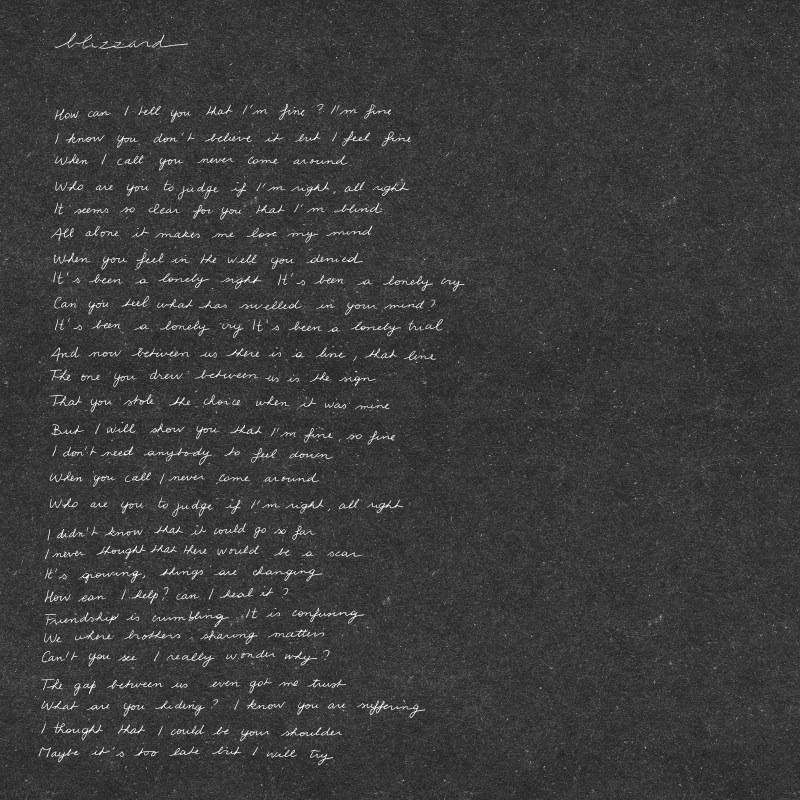 blizzard
How can I tell you that I'm fine? I'm fine
I know you don't believe it but I feel fine
When I call you never come around
Who are you to judge if I'm right, all right
It seems so clear for you that I'm blind
All alone it makes me lose my mind
When you feel in the well you denied
It's been a lonely night It's been a lonely cry
Can you tell what has swelled in your mind?
It's been a lonely cry It's been a lonely trial
And now between us there is a line, that line
The one you drew between us is the sign
That you stole the choice when it was mine
But I will show you that I'm fine, so fine
I don't need anybody to feel down
When you call I never come around
Who are you to judge if I'm right, all right
I didn't know that it could go so far
I never thought that there would be a scar
It's growing, things are changing
How can I help? can I heal it?
Friendship is crumbling It is confusing
We where brothers sharing matters
Can't you see I really wonder why?
The gap between us even got me trust
What are you hiding? I know you are suffering
I thought that I could be your shoulder
Maybe it's too late but I will try